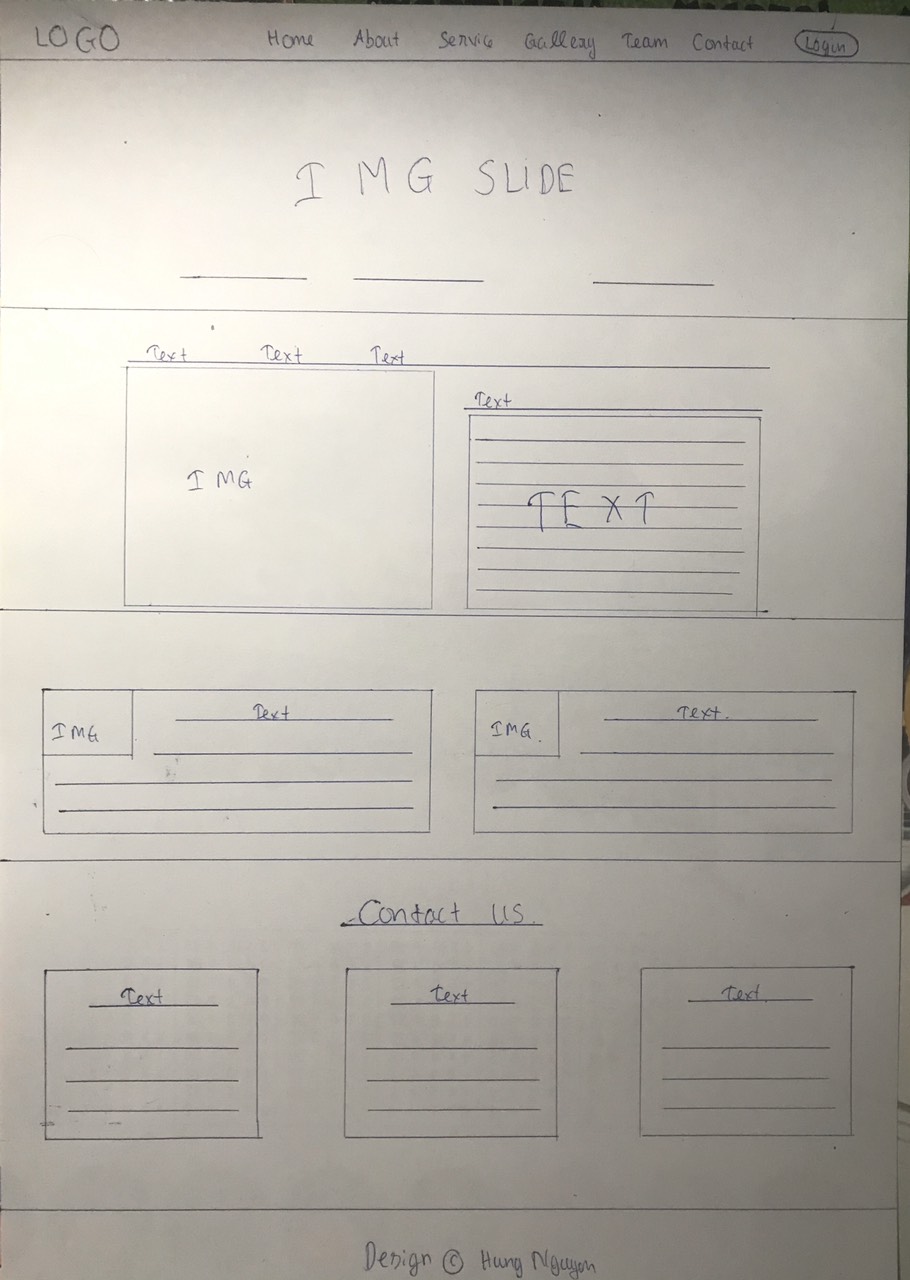 LOGO Home About Service Gallery Team Contact Login
IMG SLIDE
Text Text Text
Text
IMG
TEXT
IMG Text
IMG. Text.
Contact us.
Text Text Text.
Design © Hung Nguyen